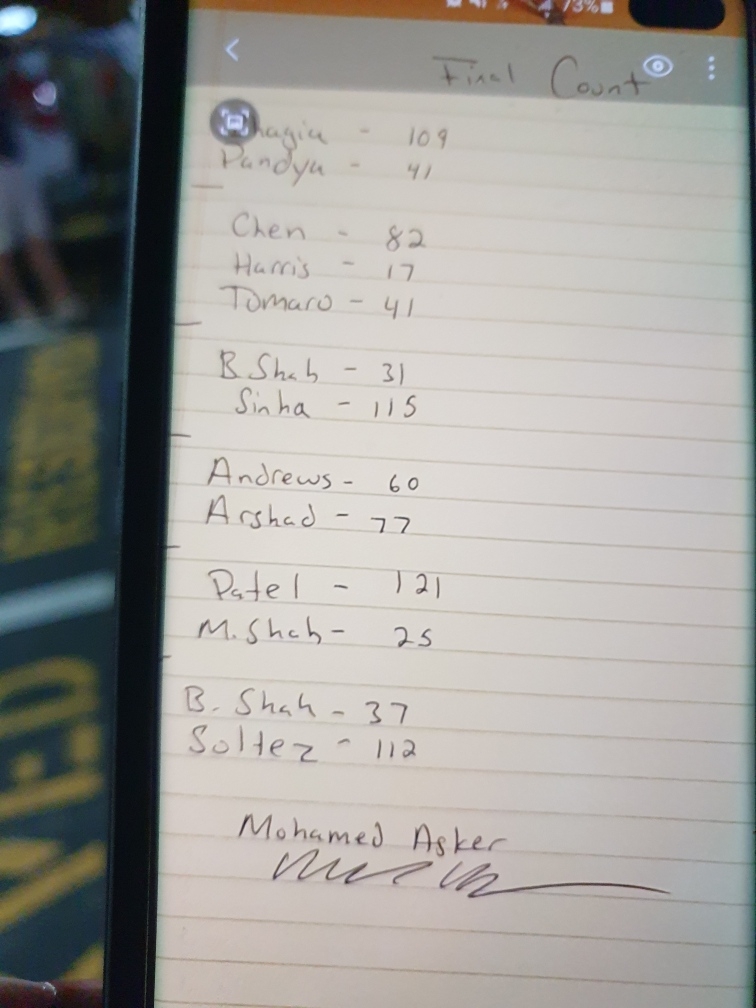 73%
Final Count
109
Pandya - 41
Chen - 82
Harris - 17
Tomaro - 41
B Shah - 31
Sinha - 115
Andrews - 60
Arshad - 77
Patel - 121
M. Shah - 25
B. Shah - 37
Soltez - 112
Mohamed Asker